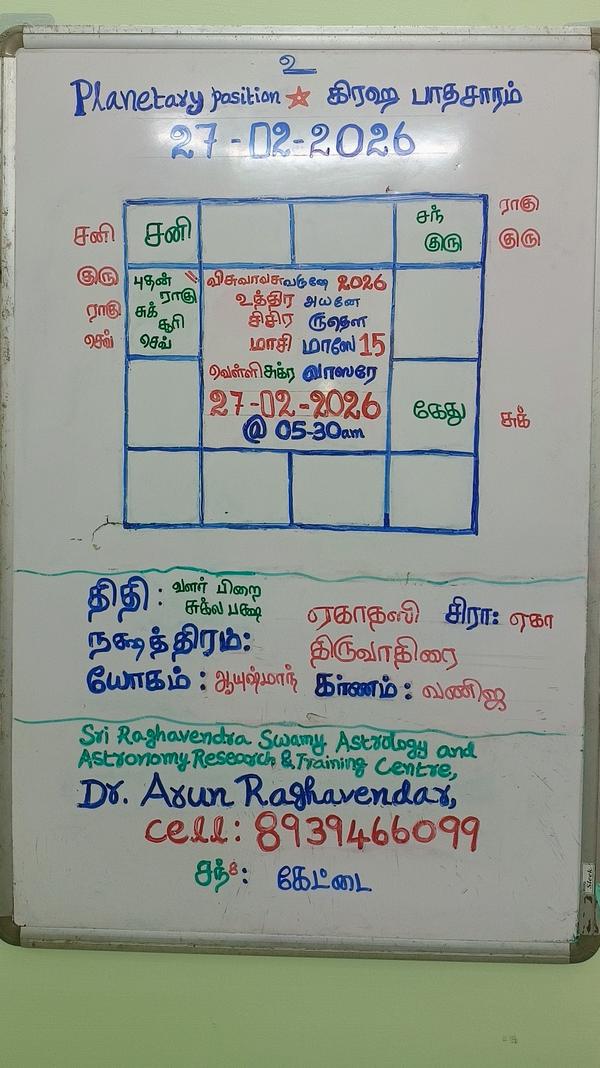 உ
Planetary position ☆ கிரஹ பாதசாரம்
27-02-2026
சனி
குரு
ராகு
செவ்
சனி
சந்
குரு
ராகு
குரு
புதன் "
ராகு
சுக்
சூரி
செவ்
விசுவாவசுவருஷே 2026
உத்திர அயனே
சிசிர ருதௌ
மாசி மாஸே 15
வெள்ளி சுக்ர வாஸரே
27-02-2026
@ 05-30am
கேது
சுக்
திதி : வளர் பிறை
சுக்ல பக்ஷ
ஏகாதஸி சிரா: ஏகா
நக்ஷத்திரம்: திருவாதிரை
யோகம் : ஆயுஷ்மாந் கர்ணம் : வணிஜ
Sri Raghavendra Swamy Astrology and
Astronomy Research & Training Centre,
Dr. Arun Raghavendar,
cell: 8939466099
சந்8: கேட்டை